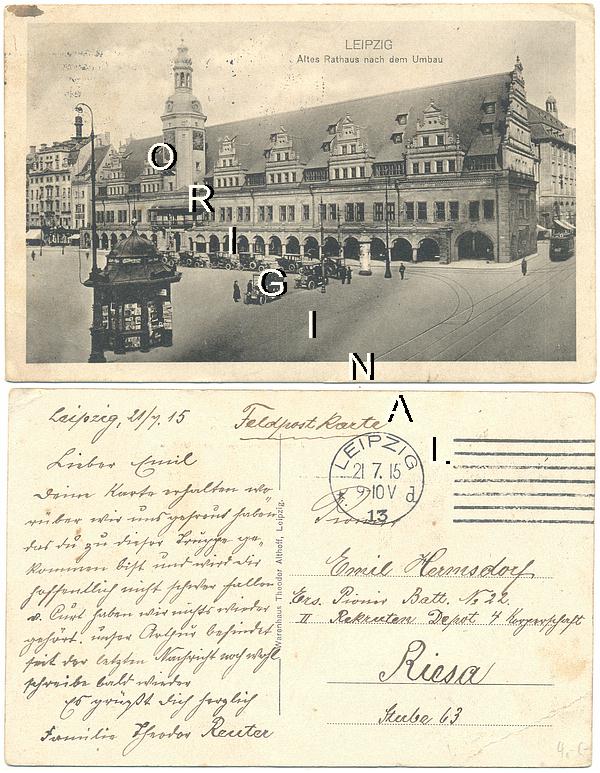 LEIPZIG
Altes Rathaus nach dem Umbau
ORIGINAL
Leipzig, 21/7. 15
Feldpostkarte
Lieber Emil
Deine Karte erhalten wo-
rüber wir uns gefreut haben
das du zu dieser Truppe ge-
kommen bist und wird dir
hoffentlich nicht schwer fallen
v. Curt haben wir nichts wieder
gehört, unser Arthur befindet
seit der letzten Nachricht noch wohl
schreibe bald wieder
Es grüßt dich herzlich
Familie Theodor Reuter
Warenhaus Theodor Althoff, Leipzig.
LEIPZIG
21 7. 15
* 9-10 V d
13
Pionier
Emil Hermsdorf
Ers. Pionir Batt. No 22.
II Rekruten Depot 4 Korporschaft
Riesa
Stube 63